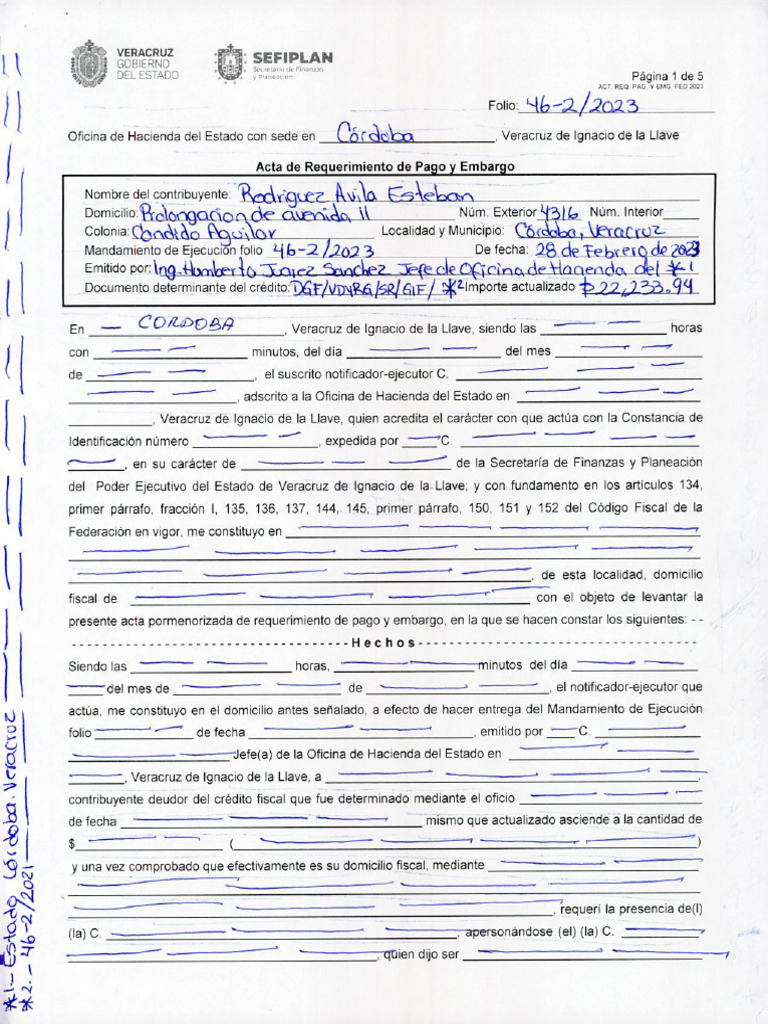 VERACRUZ
GOBIERNO
DEL ESTADO
SEFIPLAN
Secretaría de Finanzas
y Planeación
Página 1 de 5
ACT. REQ. PAG. Y EMG. FED 2023
Folio: 46-2/2023
Oficina de Hacienda del Estado con sede en Córdoba, Veracruz de Ignacio de la Llave
Acta de Requerimiento de Pago y Embargo
Nombre del contribuyente: Rodriguez Avila Esteban
Domicilio: Prolongacion de avenida 11 Núm. Exterior 4316 Núm. Interior
Colonia: Candido Aguilar Localidad y Municipio: Córdoba, Veracruz
Mandamiento de Ejecución folio 46-2/2023 De fecha: 28 de Febrero de 2023
Emitido por: Ing. Humberto Juarez Sanchez Jefe de Oficina de Hacienda del *1
Documento determinante del crédito: DGF/VDYRG/SR/GIF/ *2 Importe actualizado $22,233.94
En CORDOBA, Veracruz de Ignacio de la Llave, siendo las horas
con minutos, del día del mes
de , el suscrito notificador-ejecutor C.
, adscrito a la Oficina de Hacienda del Estado en
, Veracruz de Ignacio de la Llave, quien acredita el carácter con que actúa con la Constancia de
Identificación número , expedida por C.
, en su carácter de de la Secretaría de Finanzas y Planeación
del Poder Ejecutivo del Estado de Veracruz de Ignacio de la Llave; y con fundamento en los artículos 134,
primer párrafo, fracción I, 135, 136, 137, 144, 145, primer párrafo, 150, 151 y 152 del Código Fiscal de la
Federación en vigor, me constituyo en
, de esta localidad, domicilio
fiscal de con el objeto de levantar la
presente acta pormenorizada de requerimiento de pago y embargo, en la que se hacen constar los siguientes: - -
Hechos
Siendo las horas, minutos del día
del mes de de , el notificador-ejecutor que
actúa, me constituyo en el domicilio antes señalado, a efecto de hacer entrega del Mandamiento de Ejecución
folio de fecha , emitido por C.
Jefe(a) de la Oficina de Hacienda del Estado en
, Veracruz de Ignacio de la Llave, a
contribuyente deudor del crédito fiscal que fue determinado mediante el oficio
de fecha mismo que actualizado asciende a la cantidad de
$ ( )
y una vez comprobado que efectivamente es su domicilio fiscal, mediante
, requerí la presencia de(l)
(la) C. , apersonándose (el) (la) C.
, quien dijo ser
*1.- Estado Córdoba. Veracruz
*2.- 46-2/2021